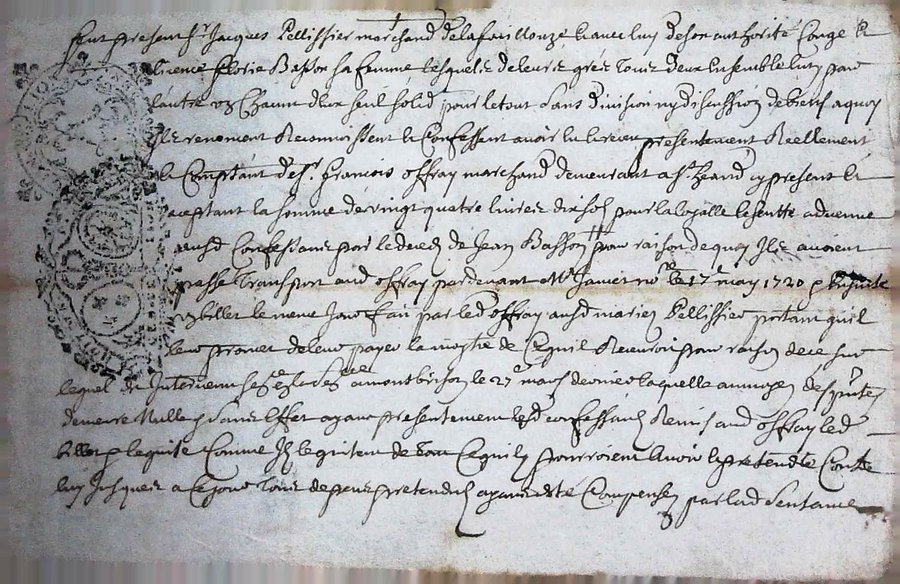 feut present Sr Jacques Pellissier marchand de lafouillouze Et avec luy de son authorité Congé Et
licence florie Basson sa femme lesquels de leurs gréz Tous deux Ensemble lun pour
lautre un Chacun deux seul solid pour le tout sans division ny discussion de biens a quoy
Ils renoncent Reconnoissent Et Confessent avoir Eu Et receu presentement Reellement
Et Comptant de Sr francois offray marchand demeurant a St heand cy present Et
aceptant la somme de vingt quatre livres dix sols pour laquelle
ausd Confessans par le deceds de Jean Basson pour raison de quoy Ils avoient
passé Transport aud offray pardevant Me Janier nore le 17e may 1720 Ensuitte
billet le meme Jour fait par led offray ausd mariez Pellissier portant quil
leur promet de leur payer la moytié de Ce quil Recevroit pour raison de ce sur
lequel Est Intervenu a montbrison le 27e mars dernier laquelle au moyen des pntes
demeure Nulle Et sans Effet ayant presentement lesd confessants Remis aud offray led
billet quitté Comme Ils le quittent de Tout Ce quils pourroient avoir Et pretendre Contre
luy Jusques a Ce Jour Tous depens pretendus ayant esté Compensés par lad sentance